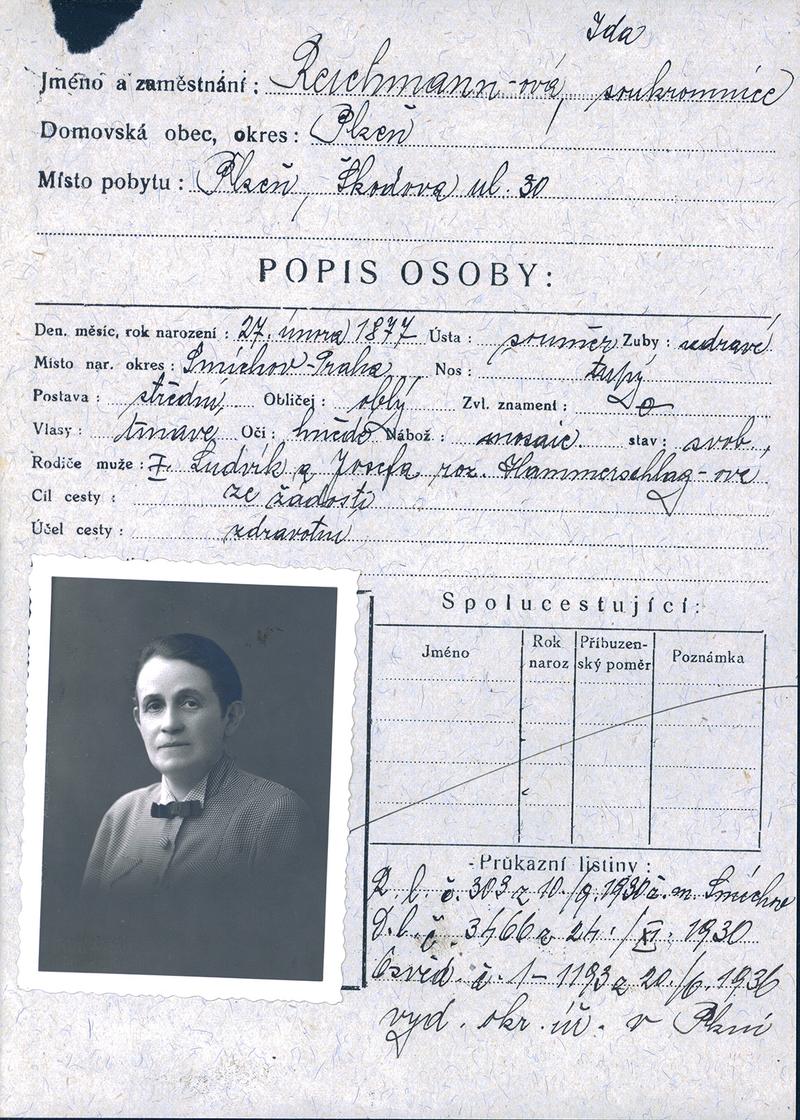 Ida
Jméno a zaměstnání : Reichmann-ová, soukromnice
Domovská obec, okres : Plzeň
Místo pobytu : Plzeň, Škodova ul. 30
POPIS OSOBY:
Den. měsíc, rok narození : 27. února 1877 Ústa : souměr. Zuby : zdravé
Místo nar. okres : Smíchov-Praha Nos : tupý
Postava : střední Obličej : oblý Zvl. znamení : o
Vlasy : tmavé Oči : hnědé Nábož. : mosaic. stav : svob.
Rodiče muže : Ludvík a Josefa roz. Hammerschlag-ové
Cíl cesty : ze žádosti
Účel cesty : zdravotní
Spolucestující:
Jméno Rok naroz Příbuzenský poměr Poznámka
Průkazní listiny :
č. 303 z 10./9. 1930 m. Smíchov
D. l. č. 3466 z 24./XI. 1930
Osvěd. č. 1-1193 z 20./6. 1936
vyd. okr. úř. v Plzni